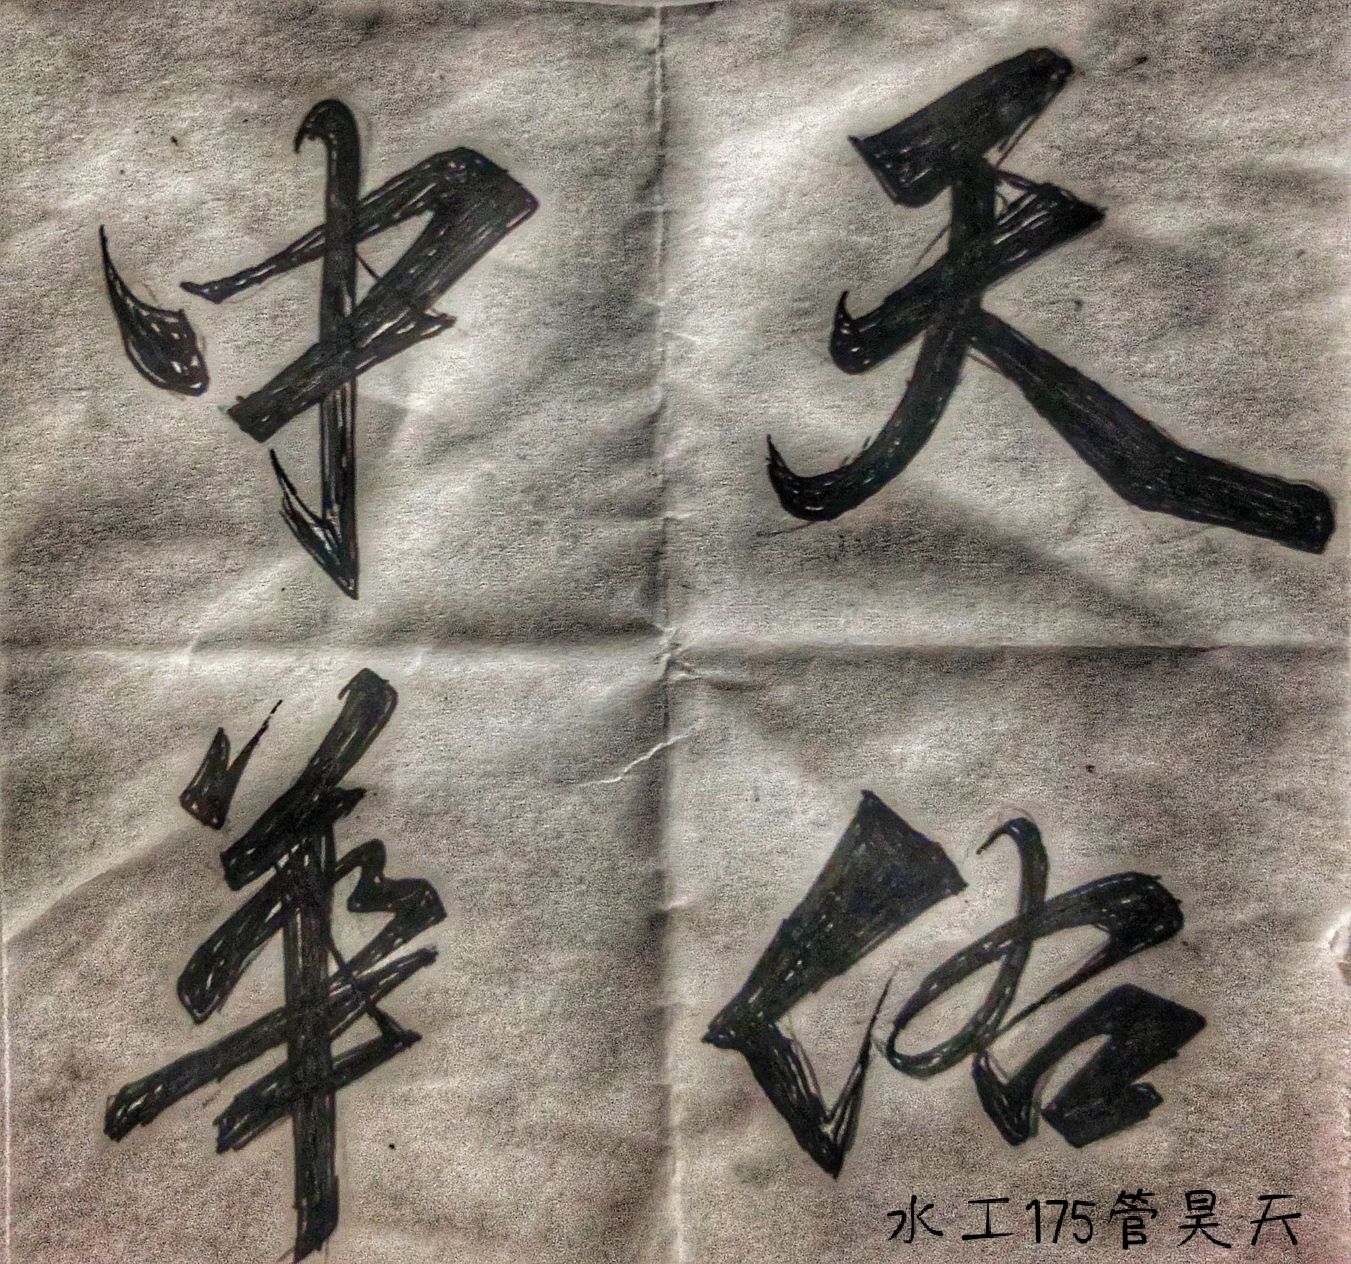 天佑
中華
水工175管昊天